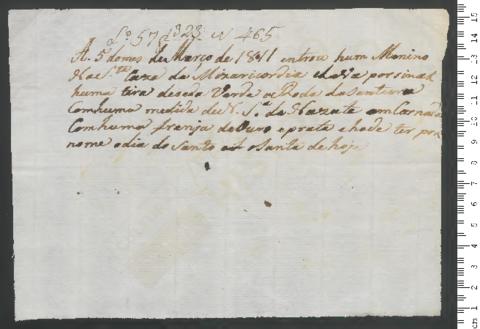 Lº 57 fl 323 nº 465
A 5 do mes de Março de 1811 entrou hum Menino
Na S.ta Caza da Mizaricordia e levava por sinal
huma tira de seda Verde
com huma medida de N. S.ª da Nazaré em Carnada
Com huma franja de Ouro e prata e hade ter por
nome o dia do Santo ou Santa de hoje